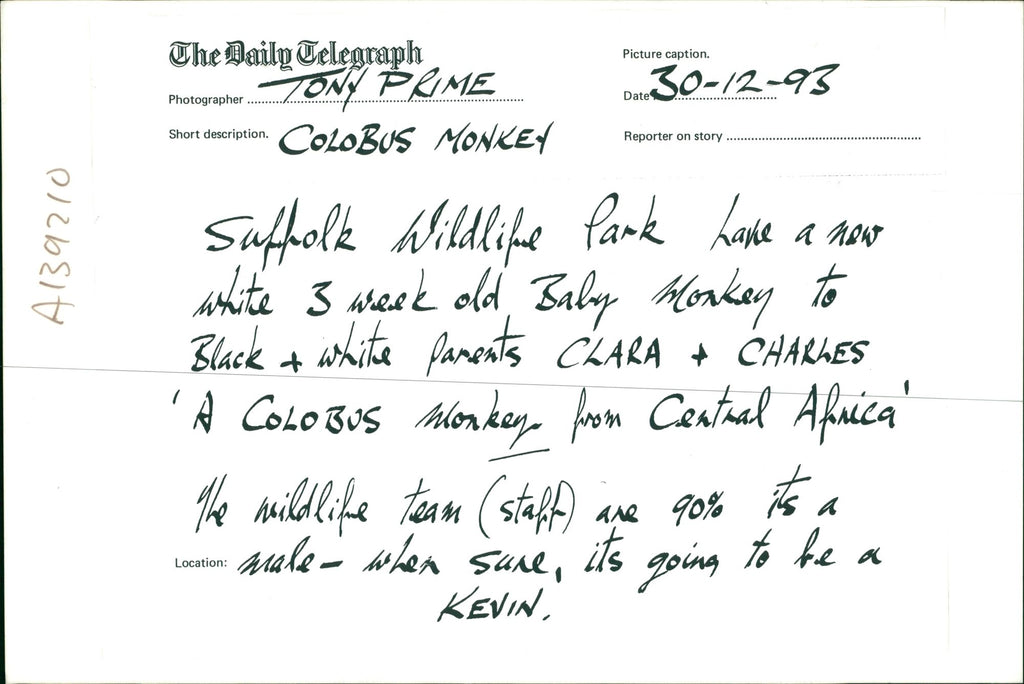 The Daily Telegraph
Picture caption.
Photographer TONY PRIME
Date 30-12-93
Short description. COLOBUS MONKEY
Reporter on story
A139210
Suffolk Wildlife Park have a new
white 3 week old Baby Monkey to
Black + white Parents CLARA + CHARLES
'A COLOBUS Monkey from Central Africa'
The wildlife team (staff) are 90% its a
Location: male - when sure, its going to be a
KEVIN.